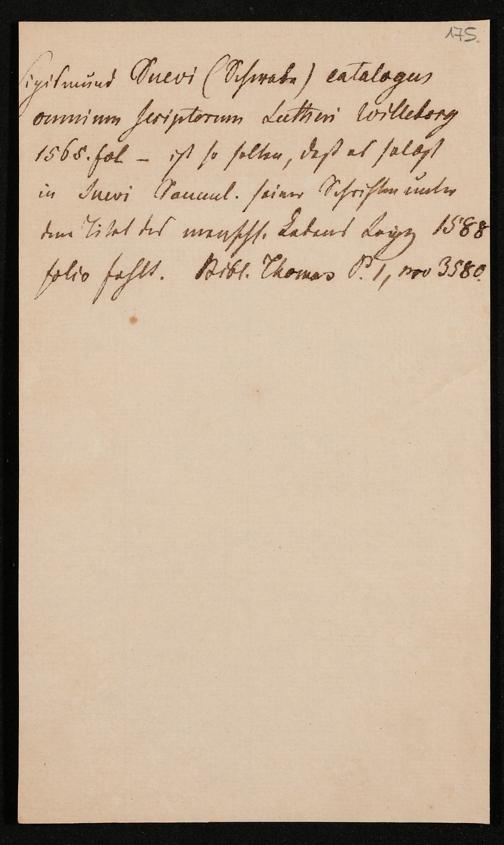 175.
Sigismund Suevi (Schwabe) catalogus
omnium scriptorum Lutheri Witteberg
1565. fol – ist so selten, daß es selbst
in Suevi Samml. seiner Schriften unter
dem Titel des menschl. Lebens 1588
folio fehlt. Bibl. Thomas P. 1, nro 3580.